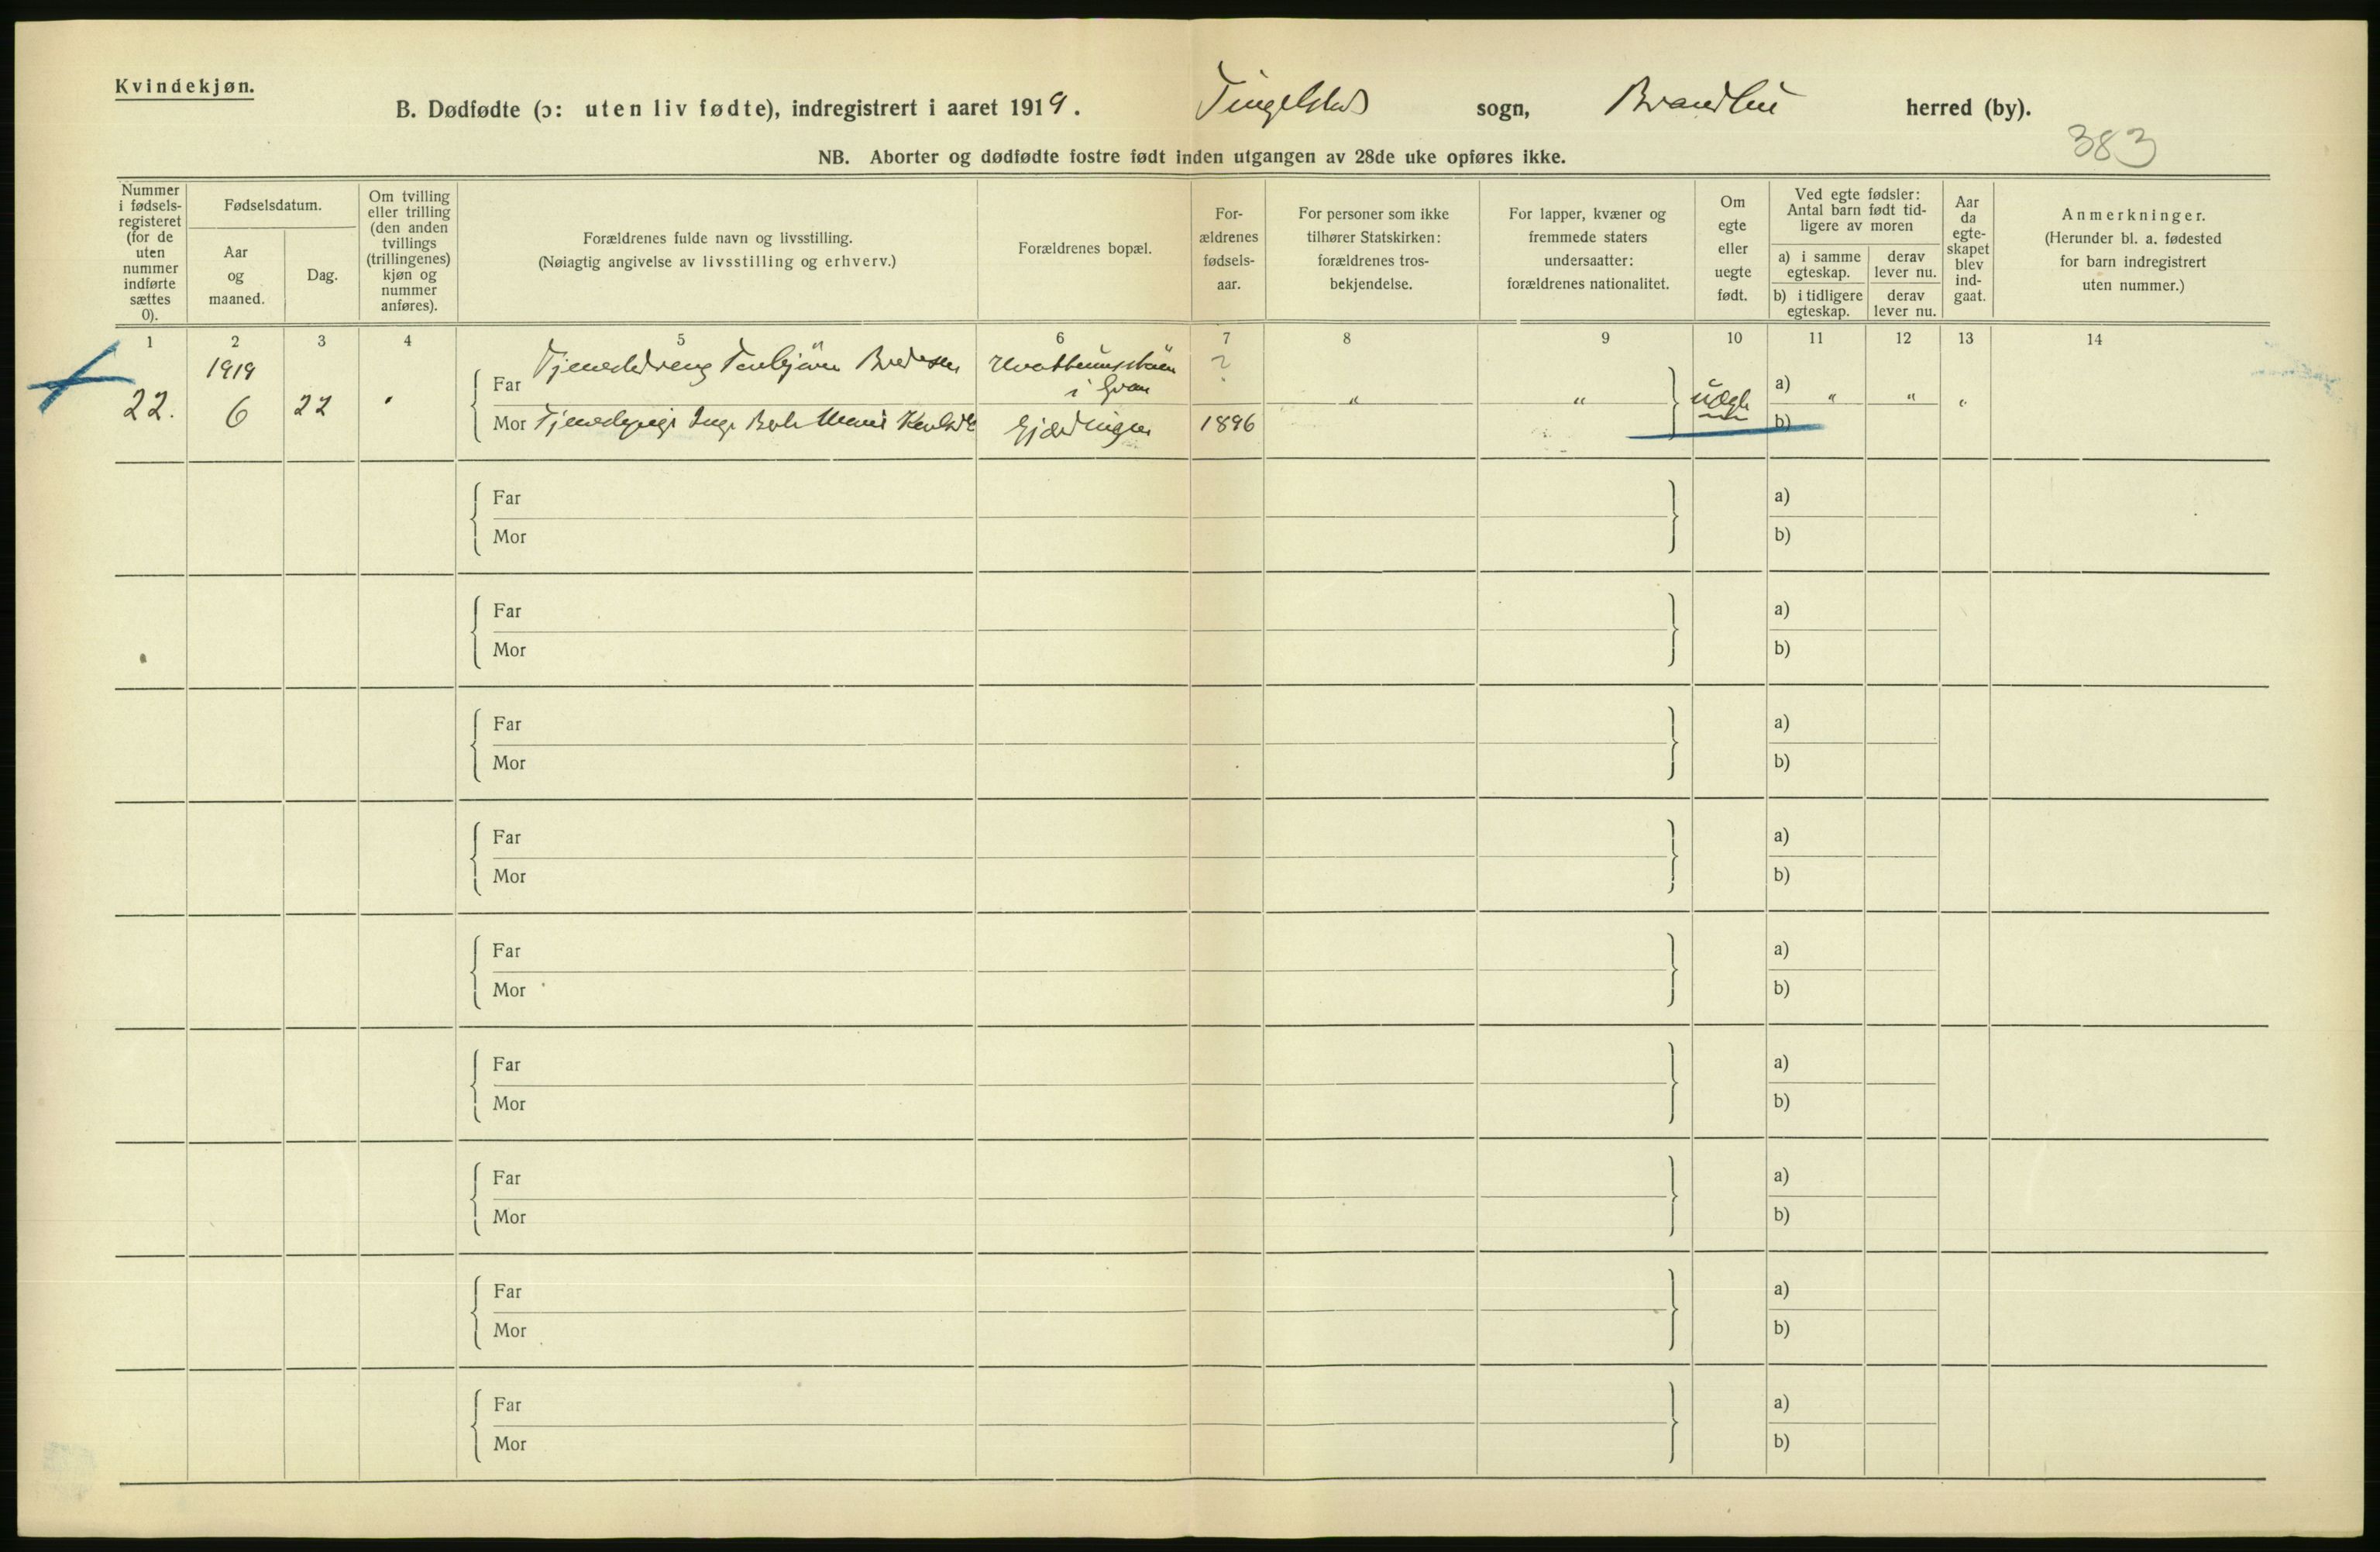 Kvindekjøn.
B. Dødfødte (ɔ: uten liv fødte), indregistrert i aaret 1919. Tingelstad sogn, Brandbu herred (by).
383
NB. Aborter og dødfødte fostre født inden utgangen av 28de uke opføres ikke.
Nummer i fødsels-registeret (for de uten nummer indførte sættes 0).
Fødselsdatum.
Aar og maaned.
Dag.
Om tvilling eller trilling (den anden tvillings (trillingenes) kjøn og nummer anføres).
Forældrenes fulde navn og livsstilling.
(Nøiagtig angivelse av livsstilling og erhverv.)
Forældrenes bopæl.
For-ældrenes fødsels-aar.
For personer som ikke tilhører Statskirken: forældrenes tros-bekjendelse.
For lapper, kvæner og fremmede staters undersaatter: forældrenes nationalitet.
Om egte eller uegte født.
Ved egte fødsler: Antal barn født tid-ligere av moren
a) i samme egteskap.
derav lever nu.
b) i tidligere egteskap.
derav lever nu.
Aar da egte-skapet blev ind-gaat.
Anmerkninger.
(Herunder bl. a. fødested for barn indregistrert uten nummer.)
1 2 3 4 5 6 7 8 9 10 11 12 13 14
22. 1919 6 22
Far Tjenestedreng Torbjörn Bredesen
i Gran ?
" " uægte a) " " "
Mor Tjenestepige Inga Marie 1896
b)
Far a)
Mor b)
Far a)
Mor b)
Far a)
Mor b)
Far a)
Mor b)
Far a)
Mor b)
Far a)
Mor b)
Far a)
Mor b)
Far a)
Mor b)
Far a)
Mor b)